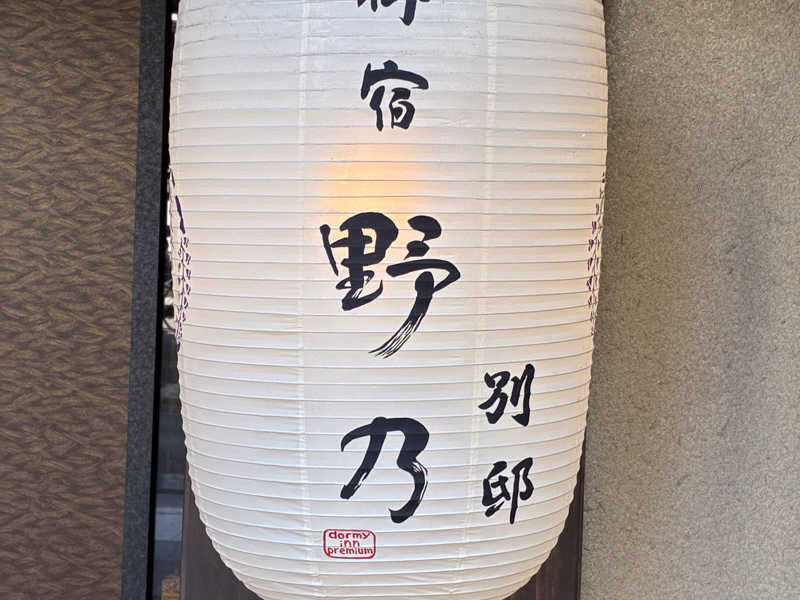 御宿
野乃
別邸
dormy
inn
premium